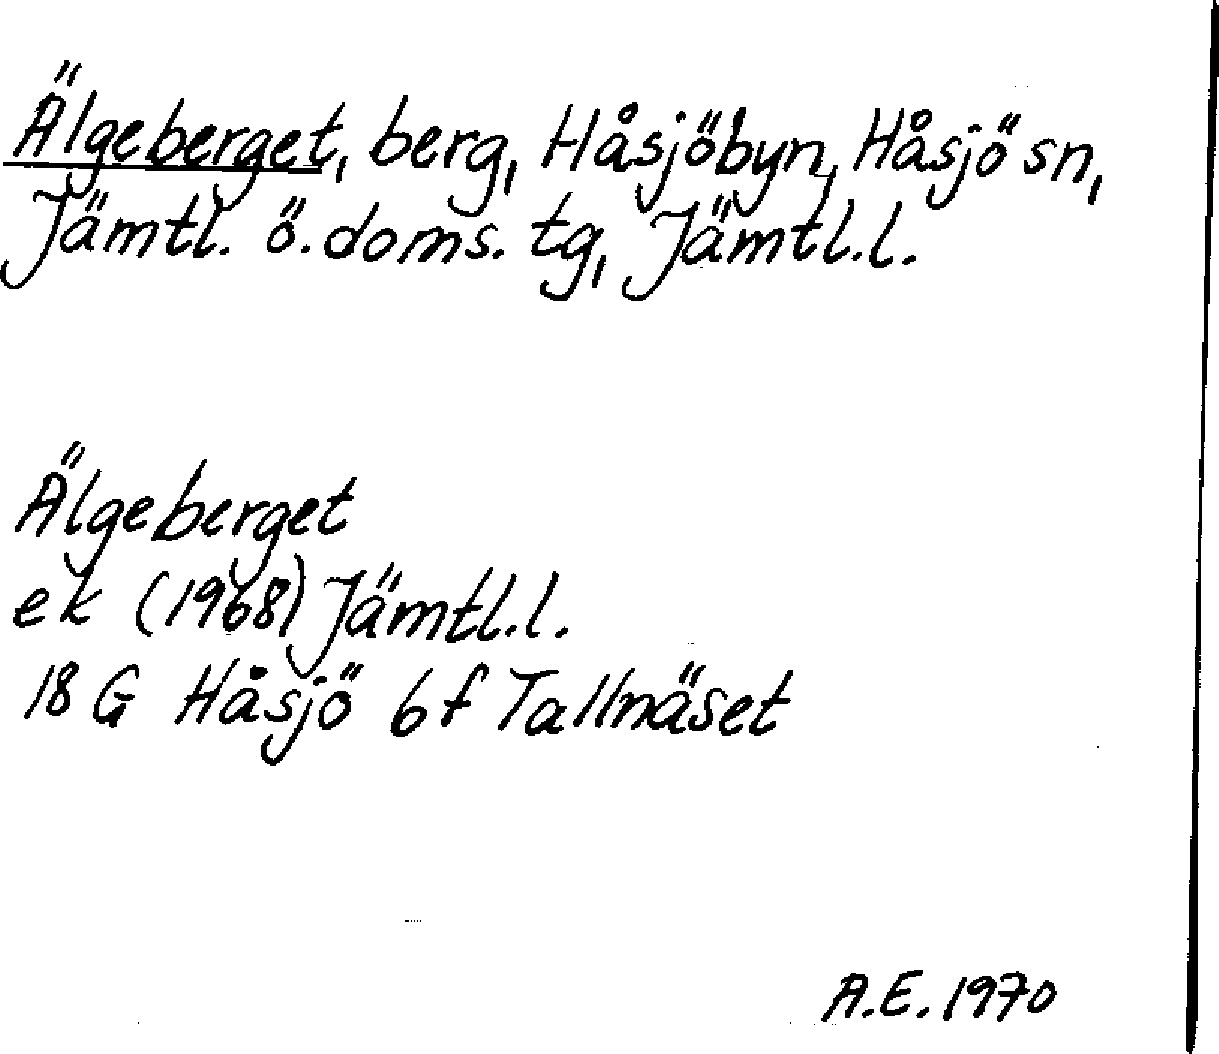 Älgeberget, berg, Håsjöbyn, Håsjö sn,
Jämtl. ö. doms. tg, Jämtl.l.
Älgeberget
ek (1968) Jämtl.l.
18 G Håsjö 6f Tallnäset
A.E. 1970